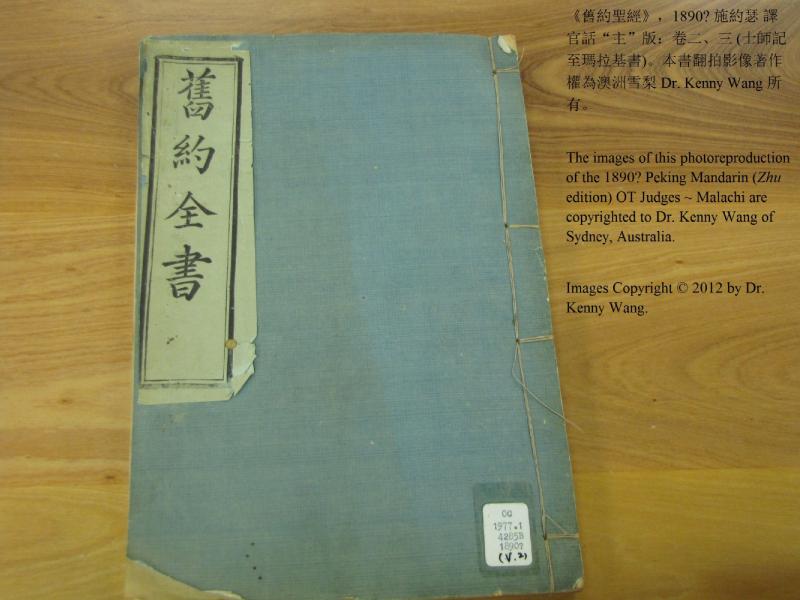 舊約全書
《舊約聖經》，1890? 施約瑟 譯
官話“主”版；卷二、三 (士師記
至瑪拉基書)。本書翻拍影像著作
權為澳洲雪梨 Dr. Kenny Wang 所
有。
The images of this photoreproduction
of the 1890? Peking Mandarin (Zhu
edition) OT Judges ~ Malachi are
copyrighted to Dr. Kenny Wang of
Sydney, Australia.
Images Copyright © 2012 by Dr.
Kenny Wang.
OG
1977.1
4285B
1890?
(V.2)